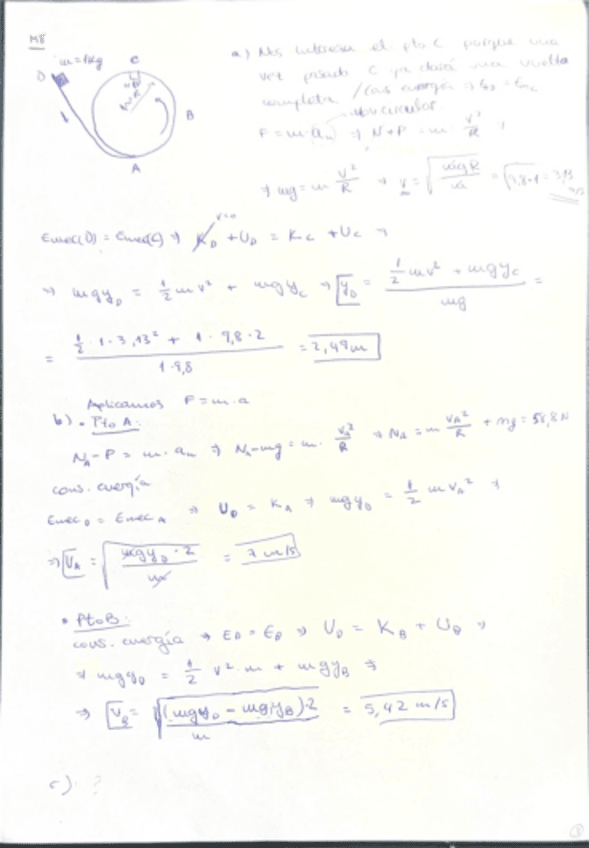 M8
m = 1kg
D
C
B
A
N
P
R
a) Nos interesa el pto C porque una
vez pasado C ya dará una vuelta
completa / Cons energía ⇒ E_D = E_mC
F = m·a_n ⇒ N+P = m · V²/R ⇒
⇒ mg = m V²/R ⇒ V = √(m·g·R/m) = √(9,8·1) = 3,13 m/s
Emec(D) = Emec(C) ⇒ K_D + U_D = K_C + U_C ⇒
V=0
⇒ mgy_D = 1/2 m v² + mgy_C ⇒ y_D = (1/2 m v² + mgy_C)/mg =
= (1/2 · 1 · 3,13² + 1 · 9,8 · 2)/(1·9,8) = 2,49 m
Aplicamos F = m·a
b) • Pto A:
N_A - P = m · a_n ⇒ N_A - mg = m · V_A²/R ⇒ N_A = m V_A²/R + mg = 58,8 N
cons. energía
Emec_D = Emec_A ⇒ U_D = K_A ⇒ mgy_D = 1/2 m V_A² ⇒
⇒ V_A = √(mgy_D · 2/m) = 7 m/s
• Pto B:
cons. energía ⇒ E_D = E_B ⇒ U_D = K_B + U_B ⇒
⇒ mgy_D = 1/2 v² · m + mgy_B ⇒
⇒ V_B = √((mgy_D - mgy_B)·2/m) = 5,42 m/s
c) ?